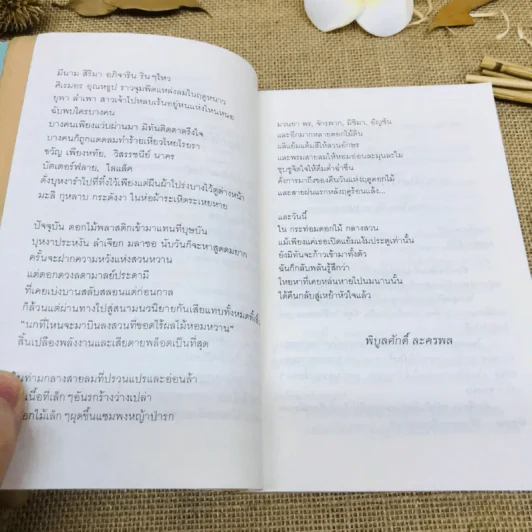 มีนาม สิริมา อภิจาริน รินๆไหว
ศิเรมอร อุณหรูป ราวจุมพิตแหล่งลมในฤดูหนาว
ยุพา ลำเพา สาวเจ้าไปหลบเร้นอยู่หนแห่งไหนหนอ
ฉับพบใครบางคน
บางคนเพียงแว่บผ่านมา มิทันติดตาตรึงใจ
บางคนก็ถูกแดดลมทำร้ายเหี่ยวโหยโรยรา
ขวัญ เพียงหทัย, วิสรรชนีย์ นาคร
บัตเตอร์ฟลาย, ไล่แล็ค
ดั่งบุหงารำไปที่ทิ้งไว้เพียงแต่ผืนผ้าโปร่งบางไว้ดูต่างหน้า
มะลิ กุหลาบ กระดังงา ในห่อผ้าระเหิดระเหยหาย
ปัจจุบัน ดอกไม้พลาสติกเข้ามาแทนที่บุษบัน
บุหงาประหงัน ลำเจียก มลาซอ นับวันก็จะหาสูดดมยาก
ครั้นจะฝากความหวังแห่งสวนหวาน
แต่ดอกดวงลดามาลย์ประดามี
ที่เคยเบ่งบานสลับสลอนแต่ก่อนกาล
ก็ล้วนแต่ผ่านทางไปสู่สนามนวนิยายกันเสียแทบทั้งหมดทั้งสิ้น
"นกที่ไหนจะมาบินลงสวนที่ขอดไร้ผลไม้หอมหวาน"
สิ้นเปลืองพลังงานและเสียดายพล็อตเป็นที่สุด
ในท่ามกลางสายลมที่ปรวนแปรและอ่อนล้า
เนื้อที่เล็กๆอันรกร้างว่างเปล่า
ดอกไม้เล็กๆผุดขึ้นแซมพงหญ้าปารก
มวนยา พร, จักรพาก, มิชิมา, อัญชัน
และอีกมากหลายดอกไม้ดิน
แล้วแย้มแต้มสีให้ลวนอักษร
และพรมสายลมให้หอมอ่อนละมุนละไม
ชุบชูจิตใจให้ดื่มด่ำฉ่ำชื่น
ดังการมาถึงของคืนวันแห่งบดูดอกไม้
และสายฝนแรกหลังฤดูร้อนแล้ง...
และวันนี้
ใน กระท่อมดอกไม้ กลางสวน
แม้เพียงแค่เธอเปิดแย้มแง้มประตูเท่านั้น
ยังมิทันจะก้าวเข้ามาทั้งตัว
ฉันก็กลับพลันรู้สึกว่า
ไหยหาที่เคยหล่นหายไปนมนานนั้น
ได้คืนกลับสู่เหย้าหัวใจแล้ว
พิบูลศักดิ์ ละครพล